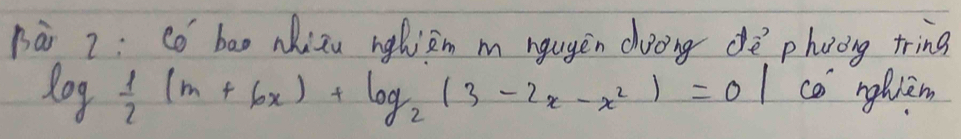 Bài 2 : Có bao nhiêu nghiệm m nguyên dương để phương trình
log 1/2 (m + 6x) + log₂ (3 - 2x - x²) = 0 | có nghiệm